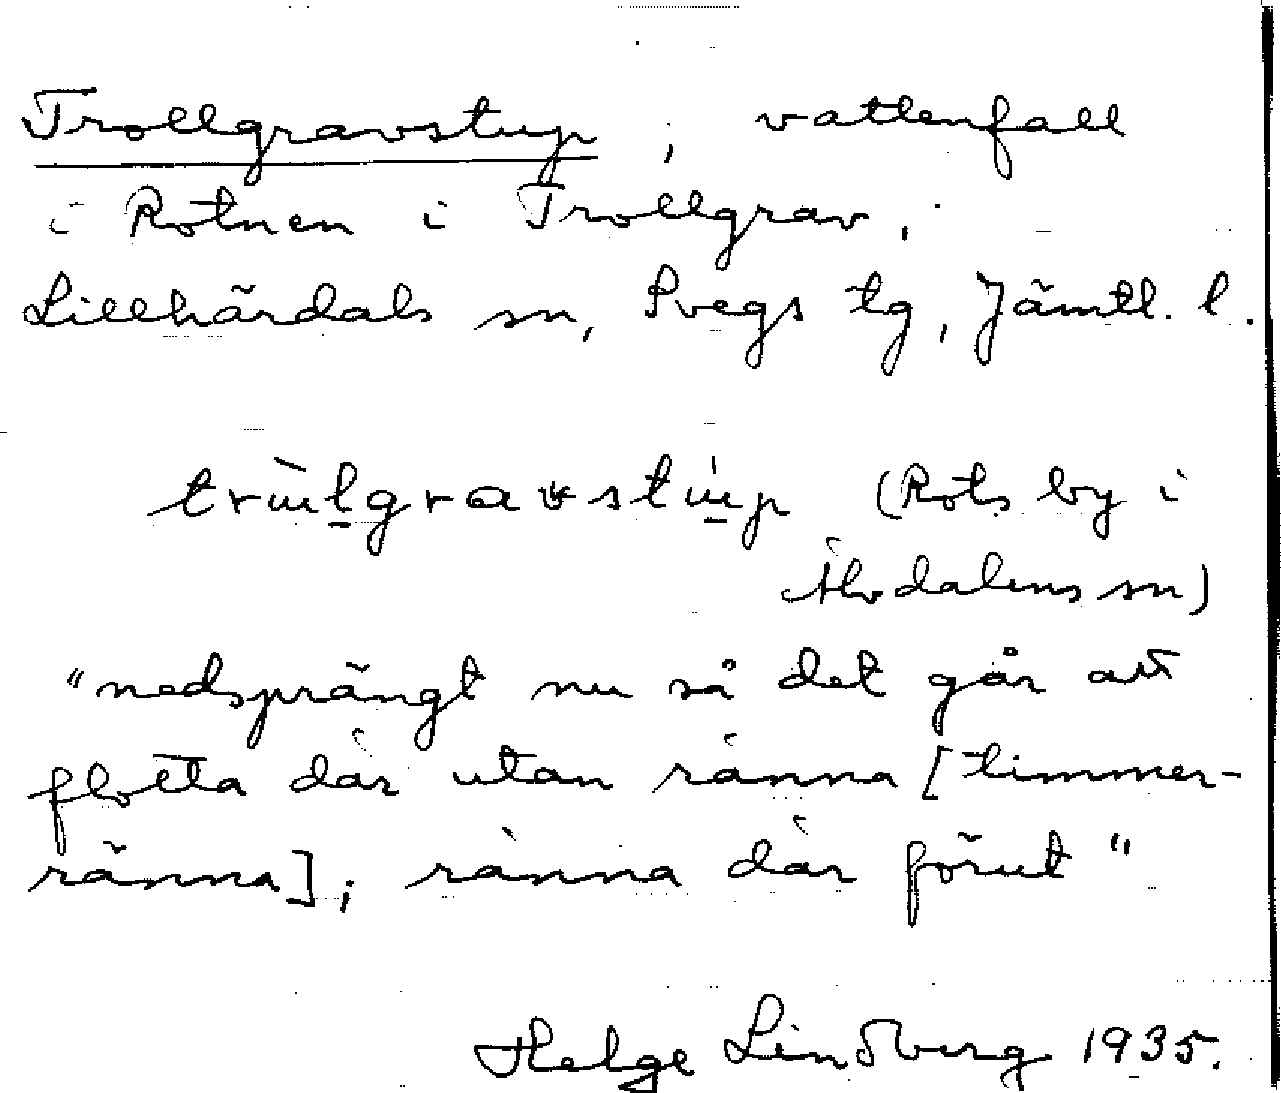 Trollgravstup, vattenfall
i Rotnen i Trollgrav,
Lillhärdals sn, Svegs tg, Jämtl. l.
(Rots by i
Älvdalens sn)
"nedsprängt nu så det går att
flotta där utan ränna [timmer-
ränna]; ränna där förut"
Helge Lindberg 1935.